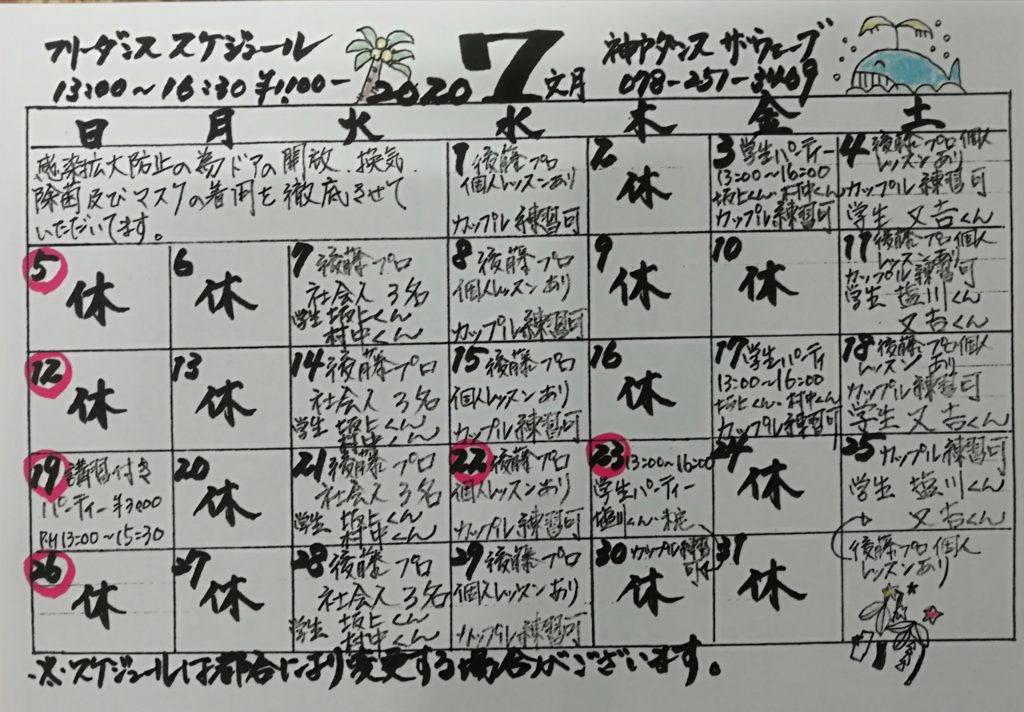 フリーダンス スケジュール
13:00～16:30 ¥1,100-
2020 7 文月
神戸ダンス ザ・ウェーブ
078-251-3469
日 月 火 水 木 金 土
感染拡大防止の為ドアの開放、換気、
除菌及びマスクの着用を徹底させて
いただいてます。
1 後藤プロ
個人レッスンあり
カップル練習可
2
休
3 学生パーティー
13:00～16:00
坂上くん・村中くん
カップル練習可
4 後藤プロ個人
レッスンあり
カップル練習可
学生 又吉くん
5
休
6
休
7 後藤プロ
社会人 3名
学生 坂上くん
村中くん
8 後藤プロ
個人レッスンあり
カップル練習可
9
休
10
休
11 後藤プロ個人
レッスンあり
カップル練習可
学生 塩川くん
又吉くん
12
休
13
休
14 後藤プロ
社会人 3名
学生 坂上くん
村中くん
15 後藤プロ
個人レッスンあり
カップル練習可
16
休
17 学生パーティ
13:00～16:00
坂上くん・村中くん
カップル練習可
18 後藤プロ個人
レッスンあり
カップル練習可
学生 又吉くん
19 講習付き
パーティー ¥3,000
PM 13:00～15:30
20
休
21 後藤プロ
社会人 3名
学生 坂上くん
村中くん
22 後藤プロ
個人レッスンあり
カップル練習可
23 13:00～16:00
学生パーティー
塩川くん・未定
カップル練習可
24
休
25 カップル練習可
学生 塩川くん
又吉くん
後藤プロ個人
レッスンあり
26
休
27
休
28 後藤プロ
社会人 3名
学生 坂上くん
村中くん
29 後藤プロ
個人レッスンあり
カップル練習可
30
休
31
休
※スケジュールは都合により変更する場合がございます。